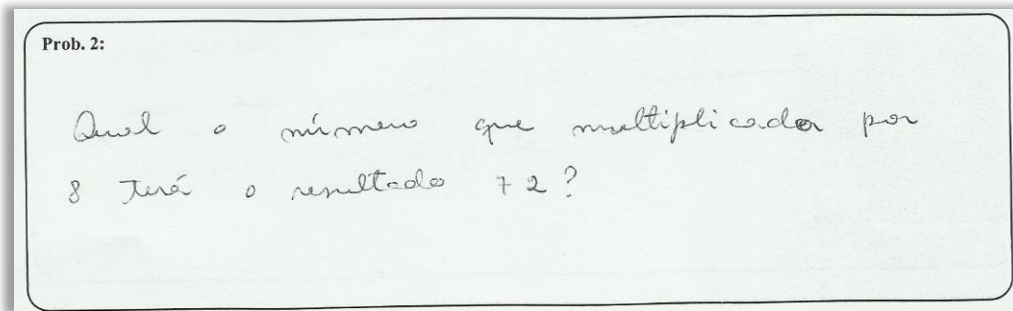 Prob. 2:
Qual o número que multiplicado por
8 Terá o resultado 72?